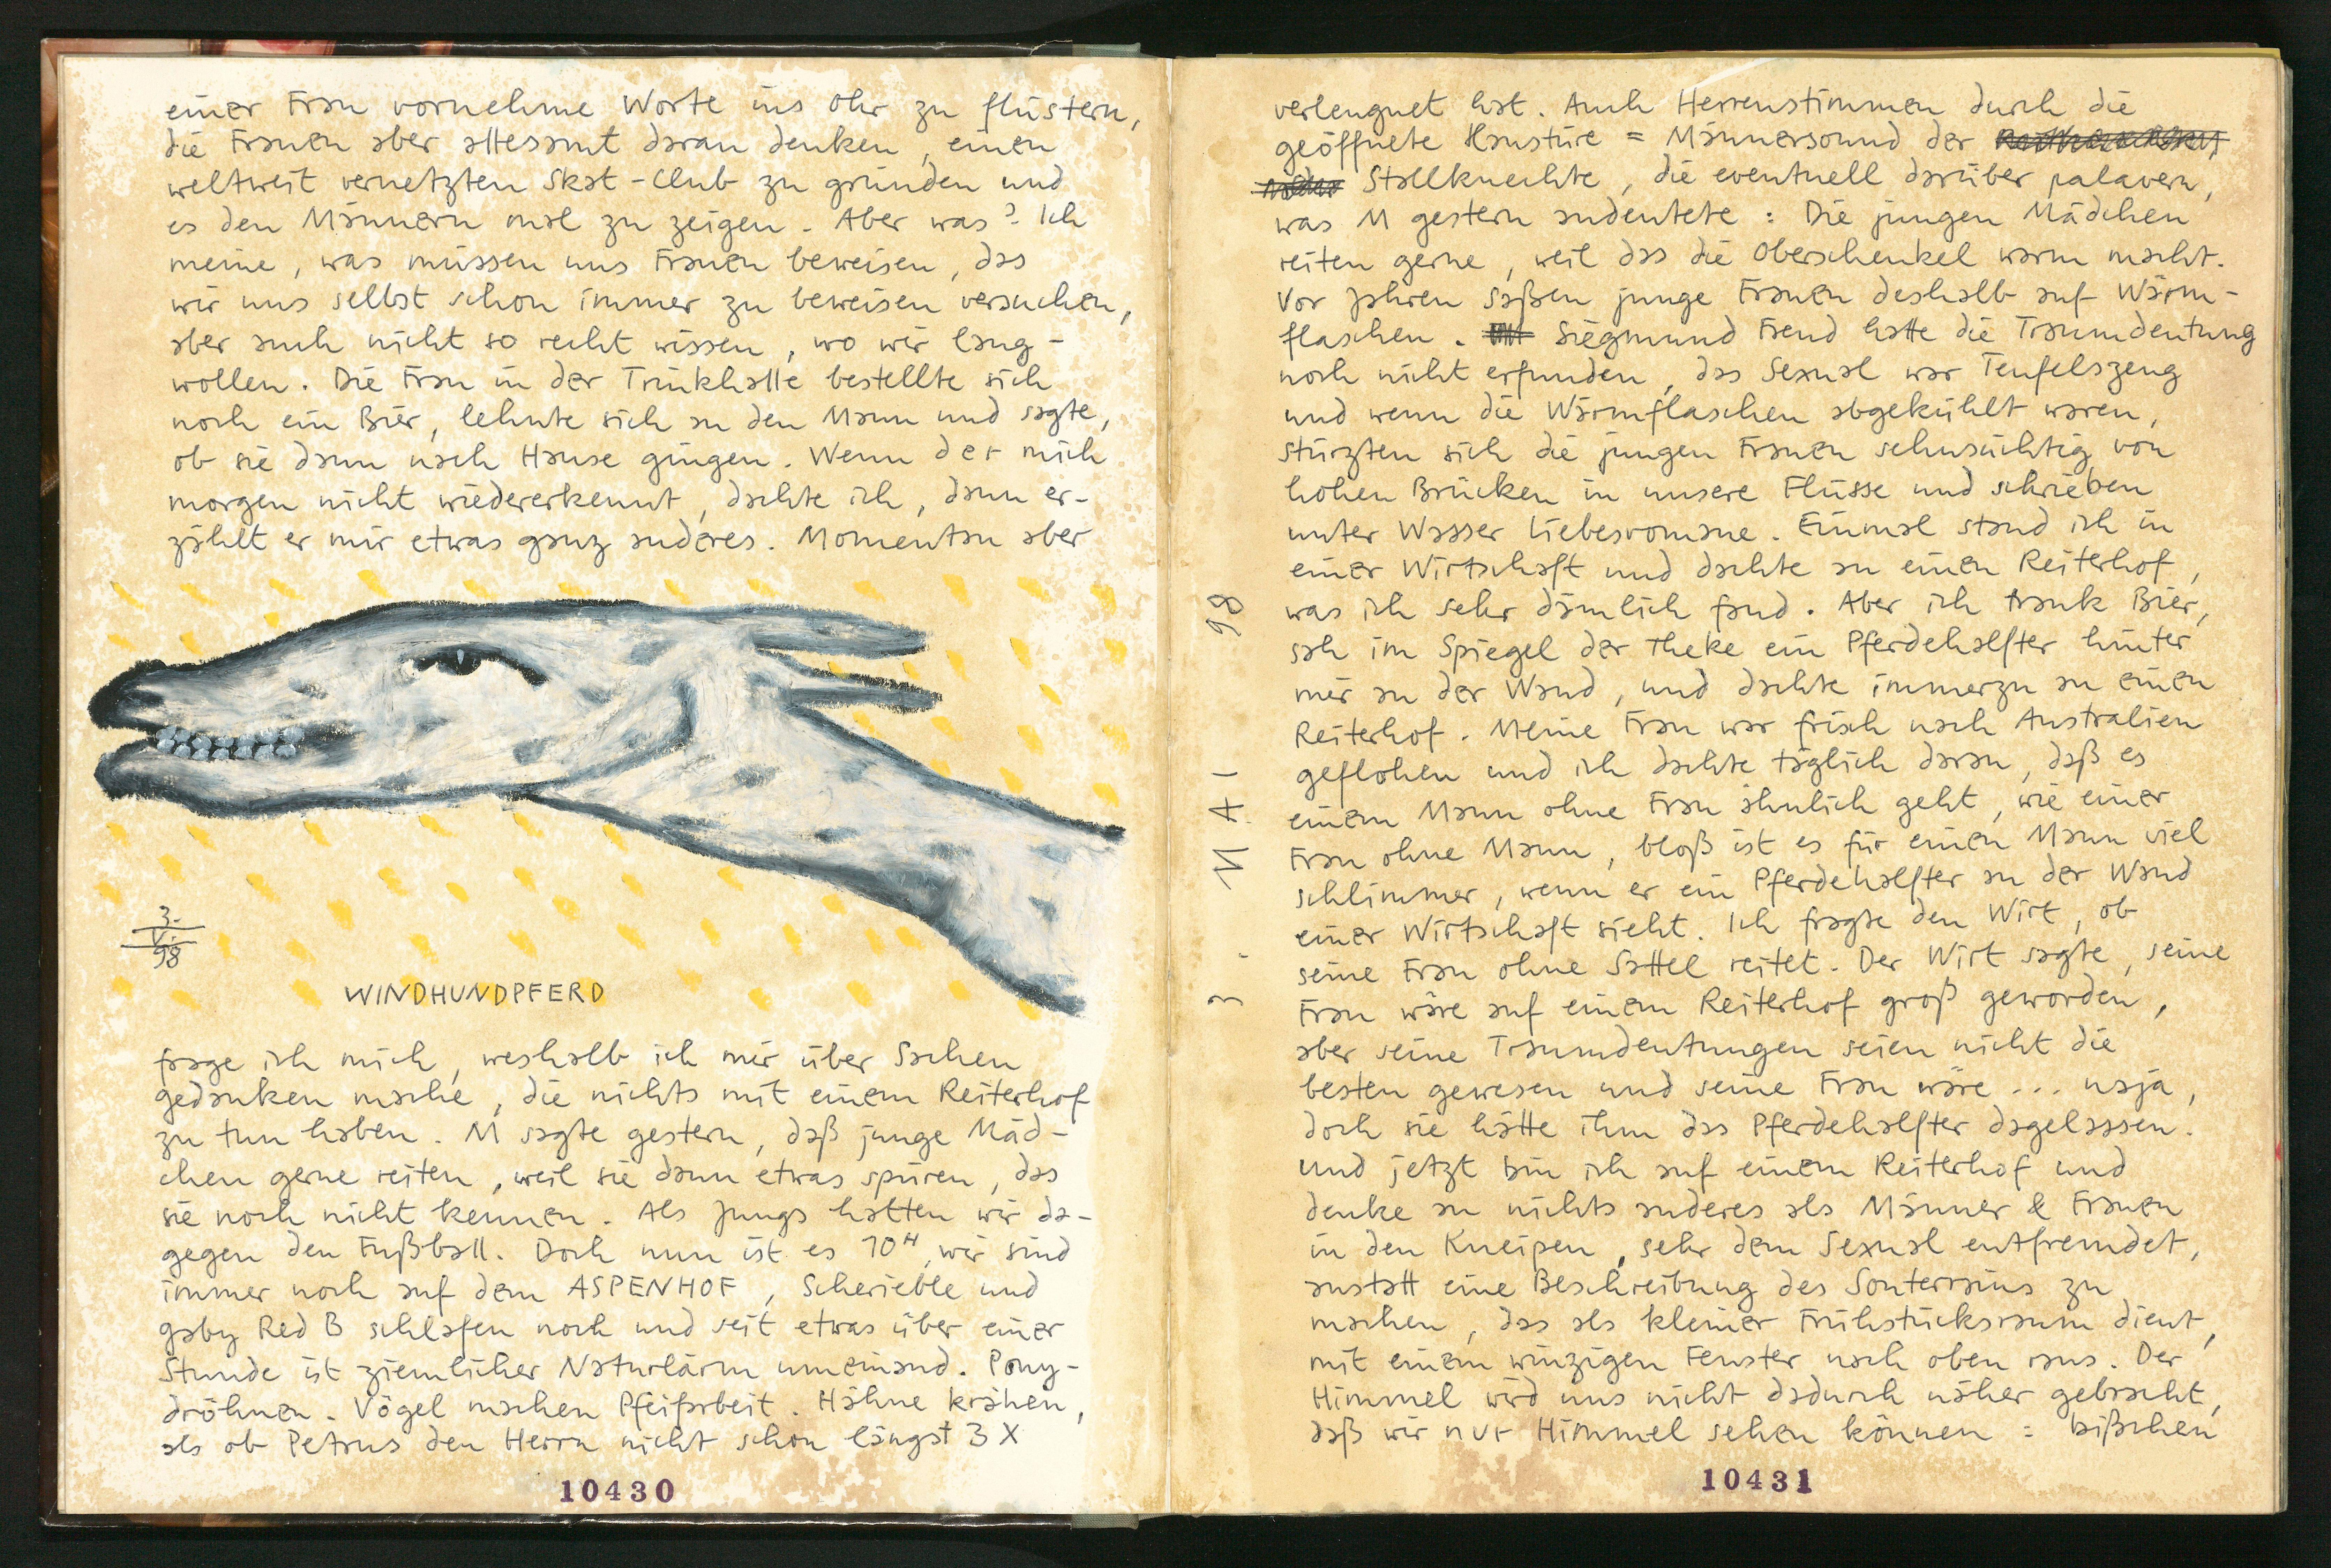 einer Frau vornehme Worte ins Ohr zu flüstern,
die Frauen aber allesamt daran denken, einen
weltweit vernetzten Skat-Club zu gründen und
es den Männern mal zu zeigen. Aber was? Ich
meine, was müssen uns Frauen beweisen, das
wir uns selbst schon immer zu beweisen versuchen,
aber auch nicht so recht wissen, wo wir lang-
wollen. Die Frau in der Trinkhalle bestellte sich
noch ein Bier, lehnte sich an den Mann und sagte,
ob sie dann nach Hause gingen. Wenn der mich
morgen nicht wiedererkennt, dachte ich, dann er-
zählt er mir etwas ganz anderes. Momentan aber
3.
V.
98
WINDHUNDPFERD
frage ich mich, weshalb ich mir über Sachen
gedanken mache, die nichts mit einem Reiterhof
zu tun haben. M sagte gestern, daß junge Mäd-
chen gerne reiten, weil sie dann etwas spüren, das
sie noch nicht kennen. Als Jungs hatten wir da-
gegen den Fußball. Doch nun ist es 10H, wir sind
immer noch auf dem ASPENHOF, Scherieble und
gaby Red B schlafen noch und seit etwas über einer
Stunde ist ziemlicher Naturlärm umeinand. Pony-
dröhnen. Vögel machen Pfeifarbeit. Hähne krähen,
als ob Petrus den Herrn nicht schon längst 3 X
10430
verleugnet hat. Auch Herrenstimmen durch die
geöffnete Haustüre = Männersound der
Stallknechte, die eventuell darüber palavern,
was M gestern andeutete: Die jungen Mädchen
reiten gerne, weil das die Oberschenkel warm macht.
Vor Jahren saßen junge Frauen deshalb auf Wärm-
flaschen. Siegmund Freud hatte die Traumdeutung
noch nicht erfunden, das Sexual war Teufelszeug
und wenn die Wärmflaschen abgekühlt waren,
stürzten sich die jungen Frauen sehnsüchtig von
hohen Brücken in unsere Flüsse und schrieben
unter Wasser Liebesromane. Einmal stand ich in
einer Wirtschaft und dachte an einen Reiterhof,
was ich sehr dämlich fand. Aber ich trank Bier,
sah im Spiegel der Theke ein Pferdehalfter hinter
mir an der Wand, und dachte immerzu an einen
Reiterhof. Meine Frau war frisch nach Australien
geflohen und ich dachte täglich daran, daß es
einem Mann ohne Frau ähnlich geht, wie einer
Frau ohne Mann, bloß ist es für einen Mann viel
schlimmer, wenn er ein Pferdehalfter an der Wand
einer Wirtschaft sieht. Ich fragte den Wirt, ob
seine Frau ohne Sattel reitet. Der Wirt sagte, seine
Frau wäre auf einem Reiterhof groß geworden,
aber seine Traumdeutungen seien nicht die
besten gewesen und seine Frau wäre... naja,
doch sie hätte ihm das Pferdehalfter dagelassen.
Und jetzt bin ich auf einem Reiterhof und
denke an nichts anderes als Männer & Frauen
in den Kneipen, sehr dem Sexual entfremdet,
anstatt eine Beschreibung des Sonterrains zu
machen, das als kleiner Frühstücksraum dient,
mit einem winzigen Fenster nach oben raus. Der
Himmel wird uns nicht dadurch näher gebracht,
daß wir nur Himmel sehen können: bißchen
3. MAI 98
10431